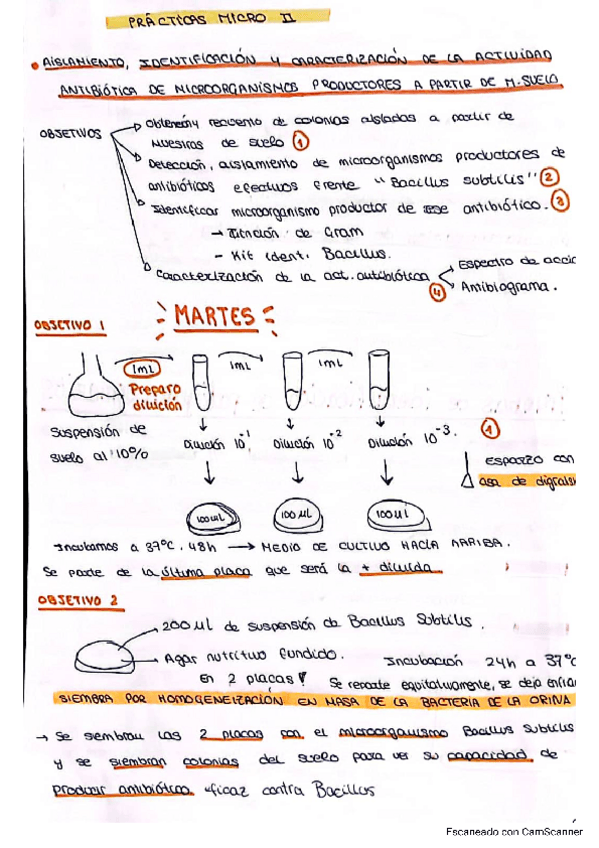 PRÁCTICAS MICRO II
• AISLAMIENTO, IDENTIFICACIÓN Y CARACTERIZACIÓN DE LA ACTIVIDAD
ANTIBIÓTICA DE MICROORGANISMOS PRODUCTORES A PARTIR DE M.SUELO
OBJETIVOS
Obtención y recuento de colonias aisladas a partir de
muestras de suelo 1
Detección, aislamiento de microorganismos productores de
antibióticos efectivos frente "Bacillus subtilis" 2
Identificar microorganismo productor de ese antibiótico. 3
→ Tinción de Gram
- Kit ident. Bacillus.
Caracterización de la act. antibiótica
Espectro de acci
4
Antibiograma.
OBJETIVO 1
MARTES
1mL
1mL
1mL
Preparo
dilución
Suspensión de
suelo al 10%
Dilución 10⁻¹
Dilución 10⁻²
Dilución 10⁻³.
1
ESPARZO con
asa de digrals
100 µl
100 µl
100 µl
Incubamos a 37ºC, 48h → MEDIO DE CULTIVO HACIA ARRIBA.
Se parte de la última placa que será la + diluida
OBJETIVO 2
200 µl de suspensión de Bacillus Subtilis.
Agar nutritivo fundido.
Incubación 24h a 37ºC
En 2 placas!
Se reparte equitativamente, se deja enfria
SIEMBRA POR HOMOGENEIZACIÓN EN MASA DE LA BACTERIA DE LA ORINA
→ Se siembran las 2 placas con el microorganismo Bacillus Subtilis
y se siembran colonias del suelo para ver su capacidad de
producir antibiótico eficaz contra Bacillus
Escaneado con CamScanner